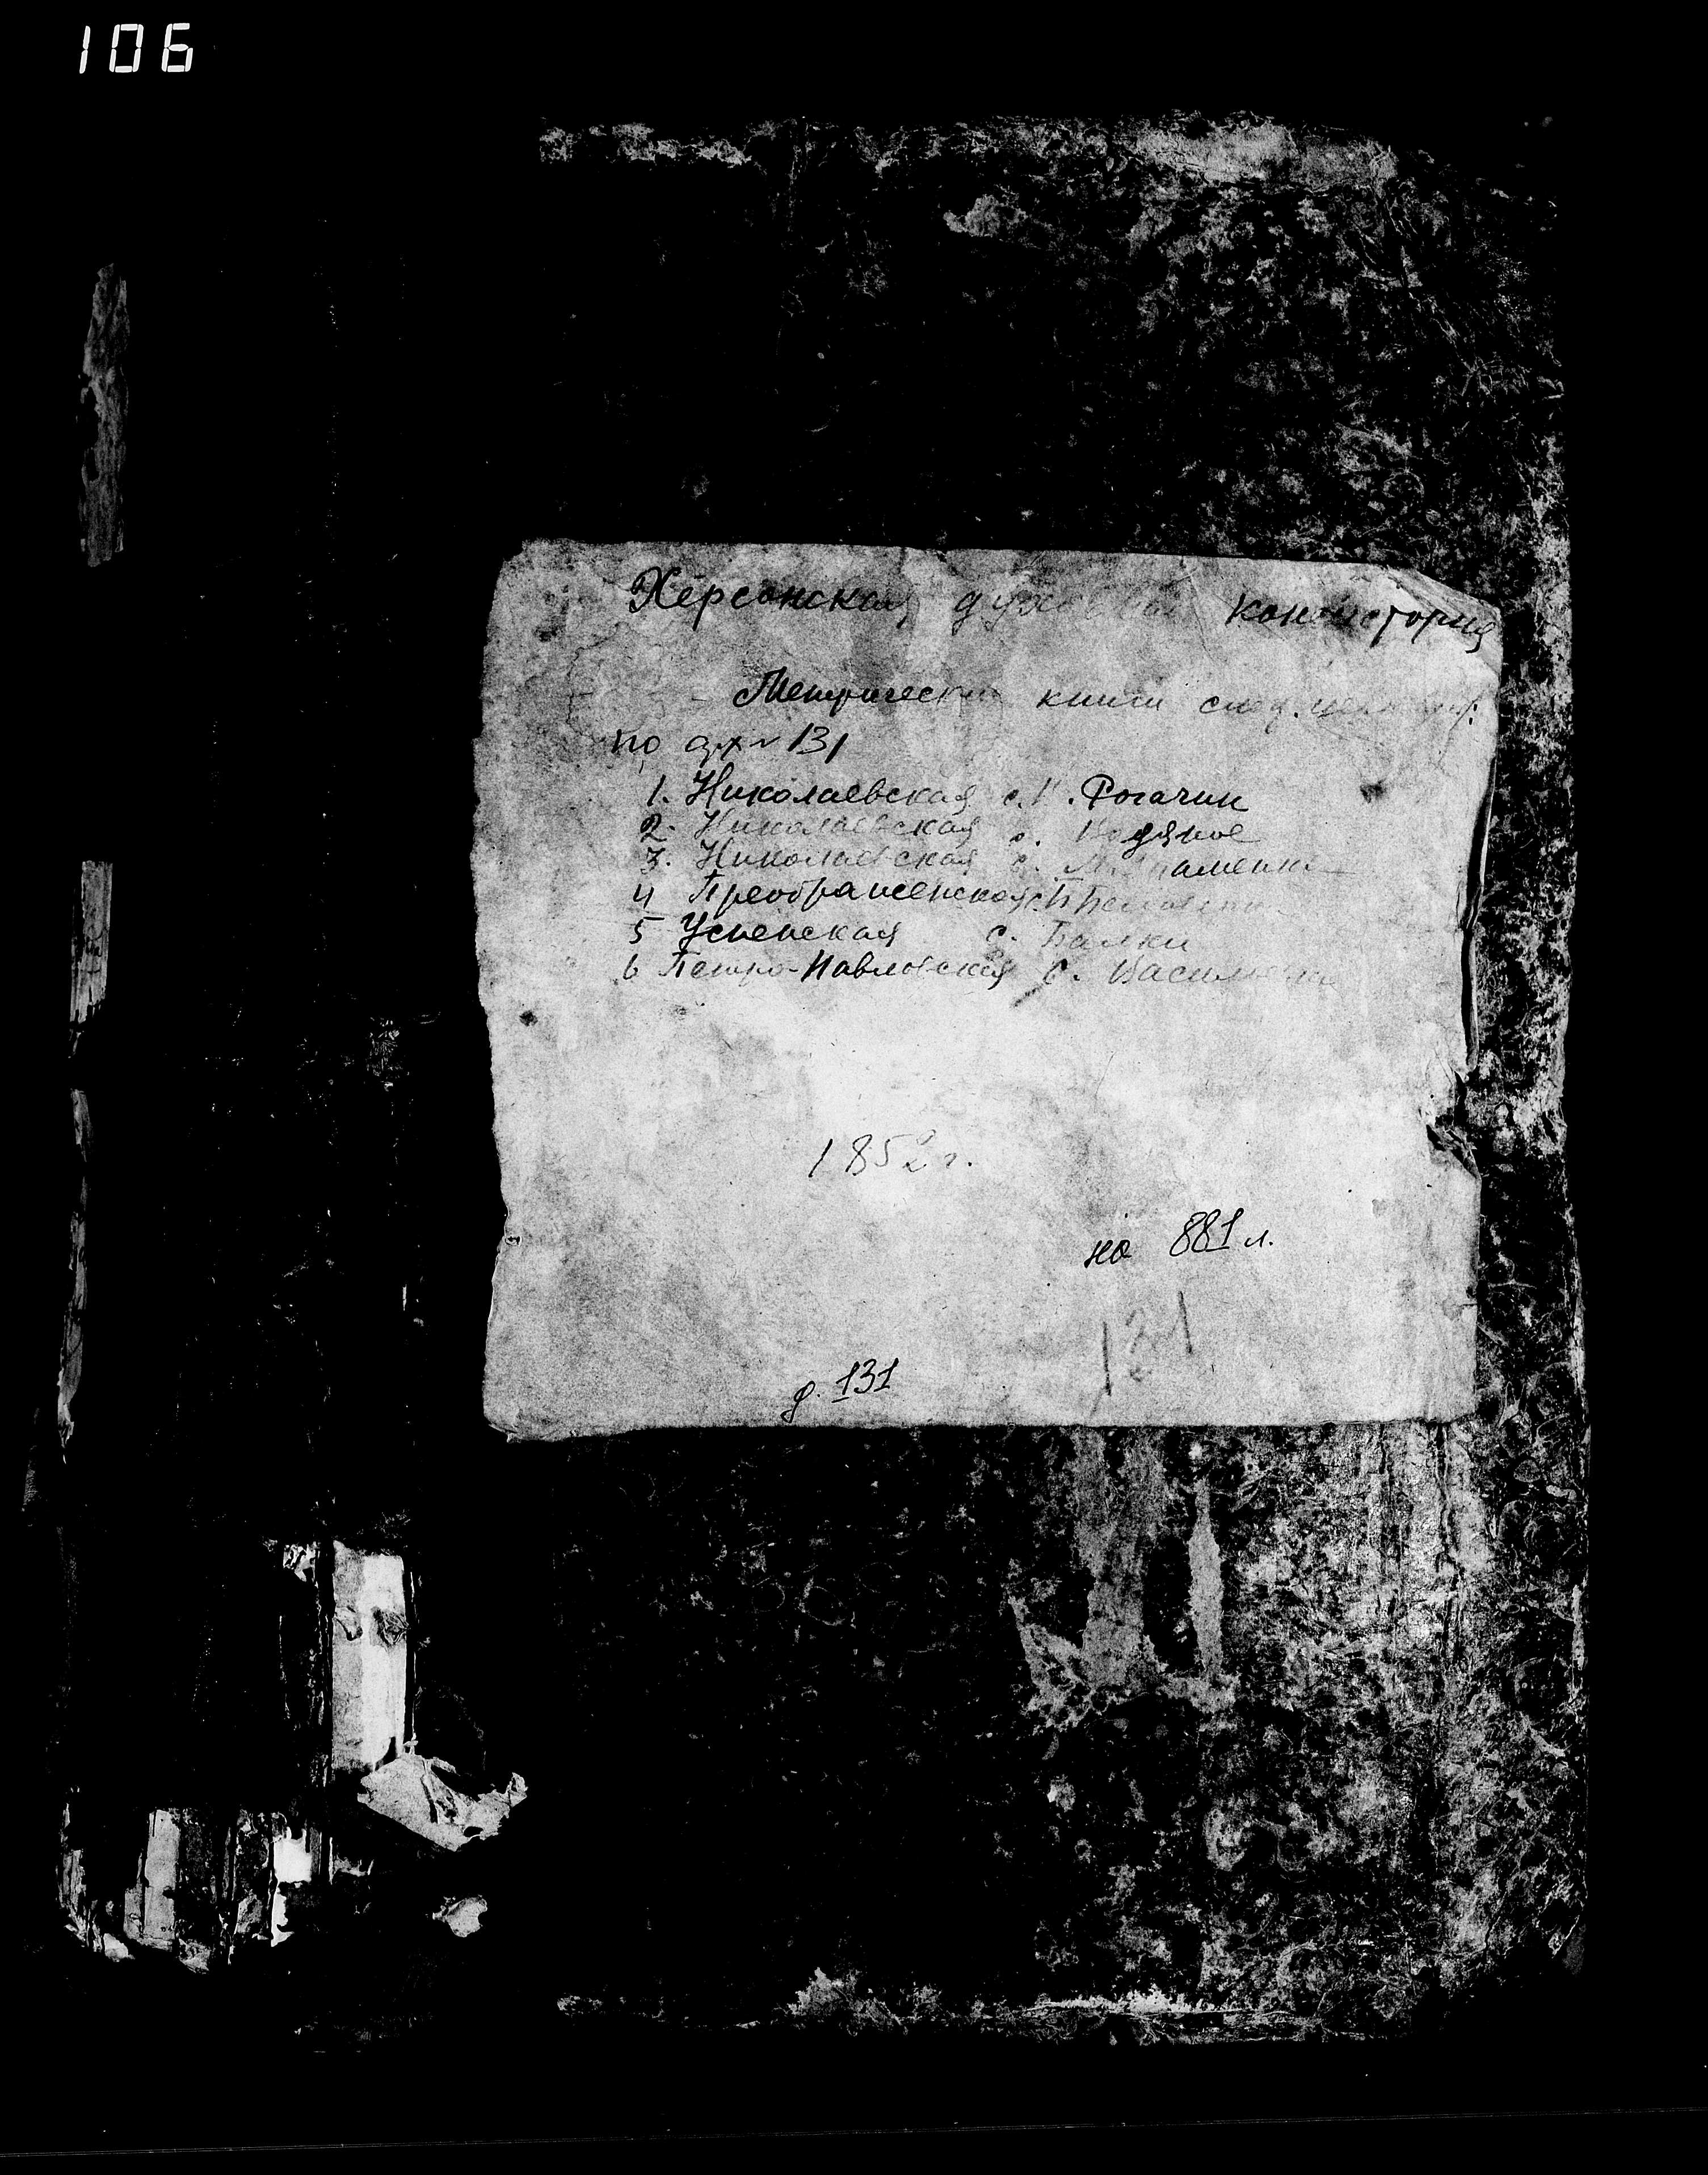 106
Херсонская духовная консистория
Метрические книги след. церквей:
по арх № 131
1. Николаевская с. Рогачик
2. Николаевская с. Водяное
3. Николаевская с. Знаменка
4 Преображенская с. Белозерка
5 Успенская с. Балки
6 Петро-Павловская с. Васильевка
1852 г.
на 881 л.
131
д. 131